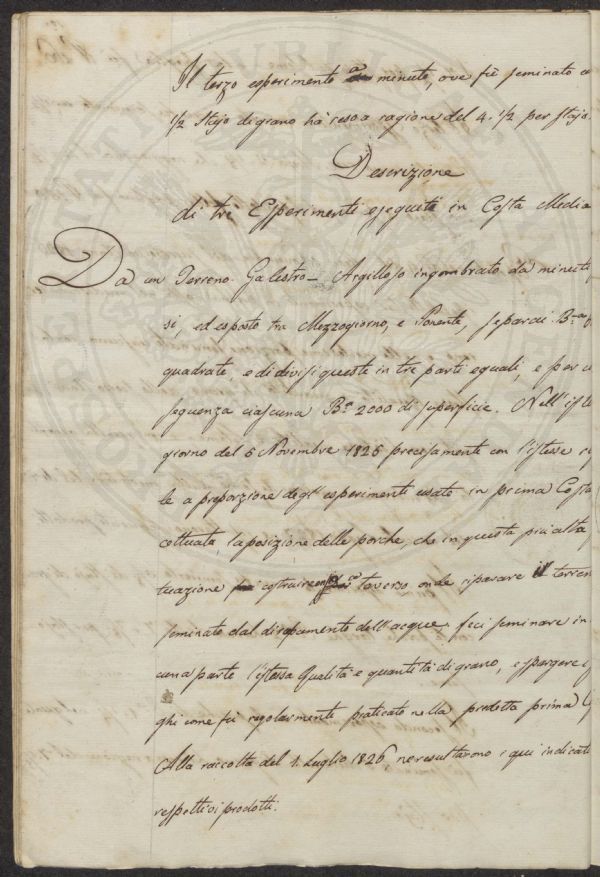 Il terzo esperimento a minuto, ove fù seminato
1/2 Stajo di grano hà reso a ragione del 4. 1/2 per stajo.
Descrizione
di trè Esperimenti eseguiti in Costa Media
Da un Terreno Galestro-Argilloso ingombrato da minuti
si, ed esposto trà Mezzogiorno, e Ponente, separai B.a
quadrate, e di divisi queste in tre parti eguali, e per
seguenza ciascuna B.a 2000 di superficie. Nell'
giorno del 6 Novembre 1825 precisamente con l'istesse
le a proporzione degl'esperimenti usate in prima Costa
cettuata la posizione delle porche, che in questa più alta
tuazione costruire a traverso onde riparare il terren
seminato dal dirupamento dell'acque, feci seminare in
cuna parte l'istessa Qualità e quantità di grano, e spargere
ghi come fù regolarmente praticato nella predetta prima
Alla raccolta del 1. Luglio 1826, ne resultarono i qui indicati
respettivi prodotti.